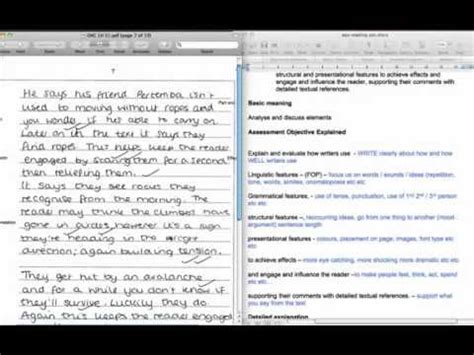 7
He says his friend Pertemba isn't
used to moving without ropes and
you wonder if hes able to carry on.
Later on in the text it says they
find ropes. This helps keep the reader
engaged by scaring them for a second
then relieving them.
It says they see rocks they
recognise from the morning. The
reader may think the climbers have
gone in circles, however it's a sign
they're heading in the right
direction; again building tension.
They get hit by an avalanche
and for a while you don't know if
they'll survive. Luckily they do.
Again this keeps the reader engaged
structural and presentational features to achieve effects and
engage and influence the reader, supporting their comments with
detailed textual references.
Basic meaning
Analyse and discuss elements
Assessment Objective Explained
Explain and evaluate how writers use – WRITE clearly about how and how
WELL writers use
Linguistic features – (FOP) – focus on us words / sounds / ideas (repetition,
tone, words, similes, onomatopoeia etc etc
Grammatical features, - use of tense, punctuation, use of 1st 2nd / 5th person
etc etc
structural features –, reoccuring ideas, go from one thing to another (mood
argument) sentence length
presentational features, - colours, placement on page, images, font type etc
etc
to achieve effects – more eye catching, more shocking more dramatic etc etc
and engage and influence the reader, –to make people feel, think, act, spend
etc etc
supporting their comments with detailed textual references. - support what
you say from the text
Detailed explanation